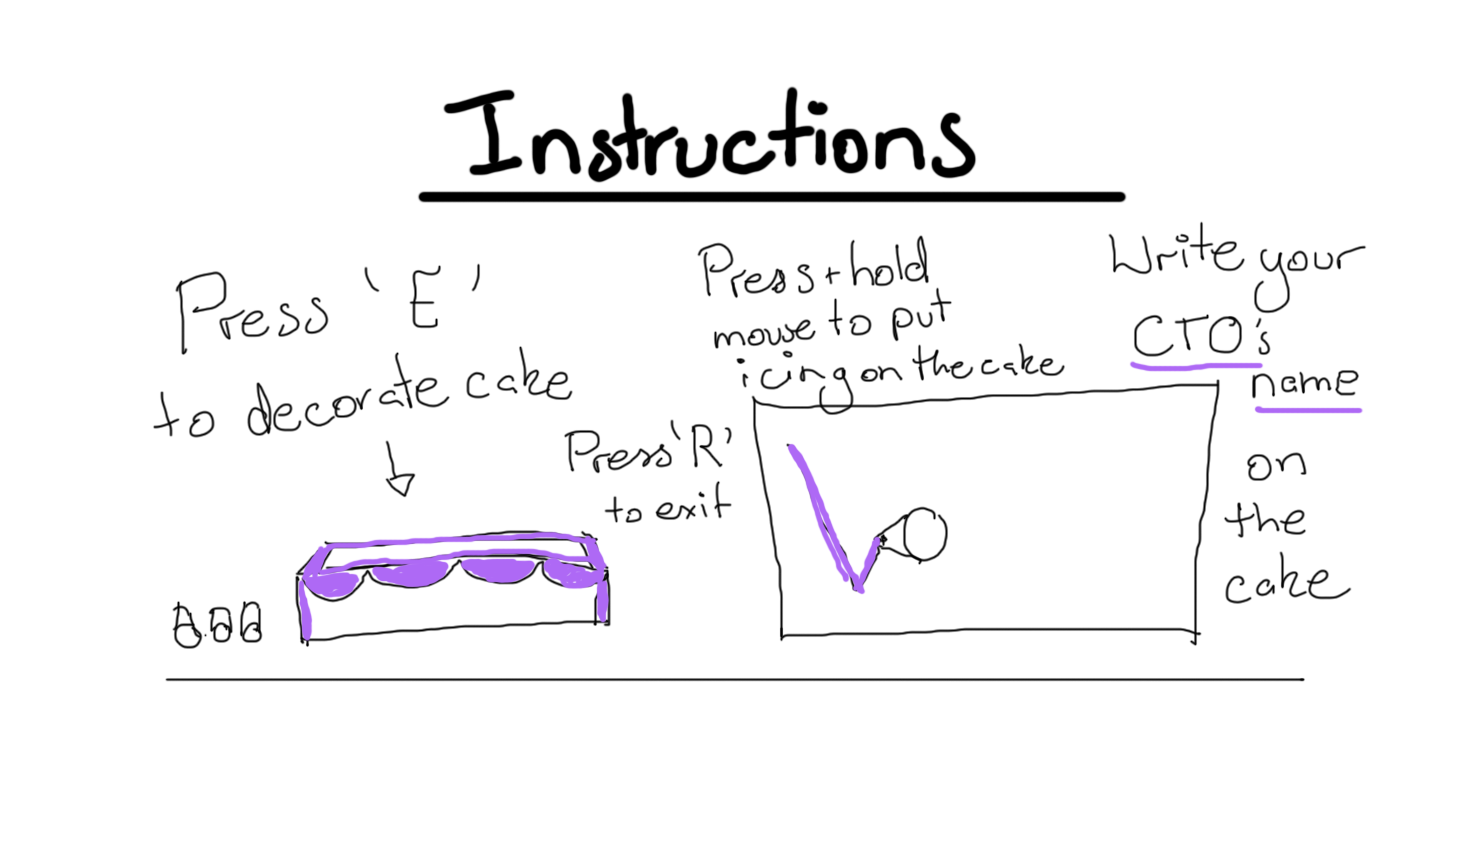 Instructions
Press 'E'
to decorate cake
Press 'R'
to exit
Press + hold
mouse to put
icing on the cake
Write your
CTO's
name
on
the
cake